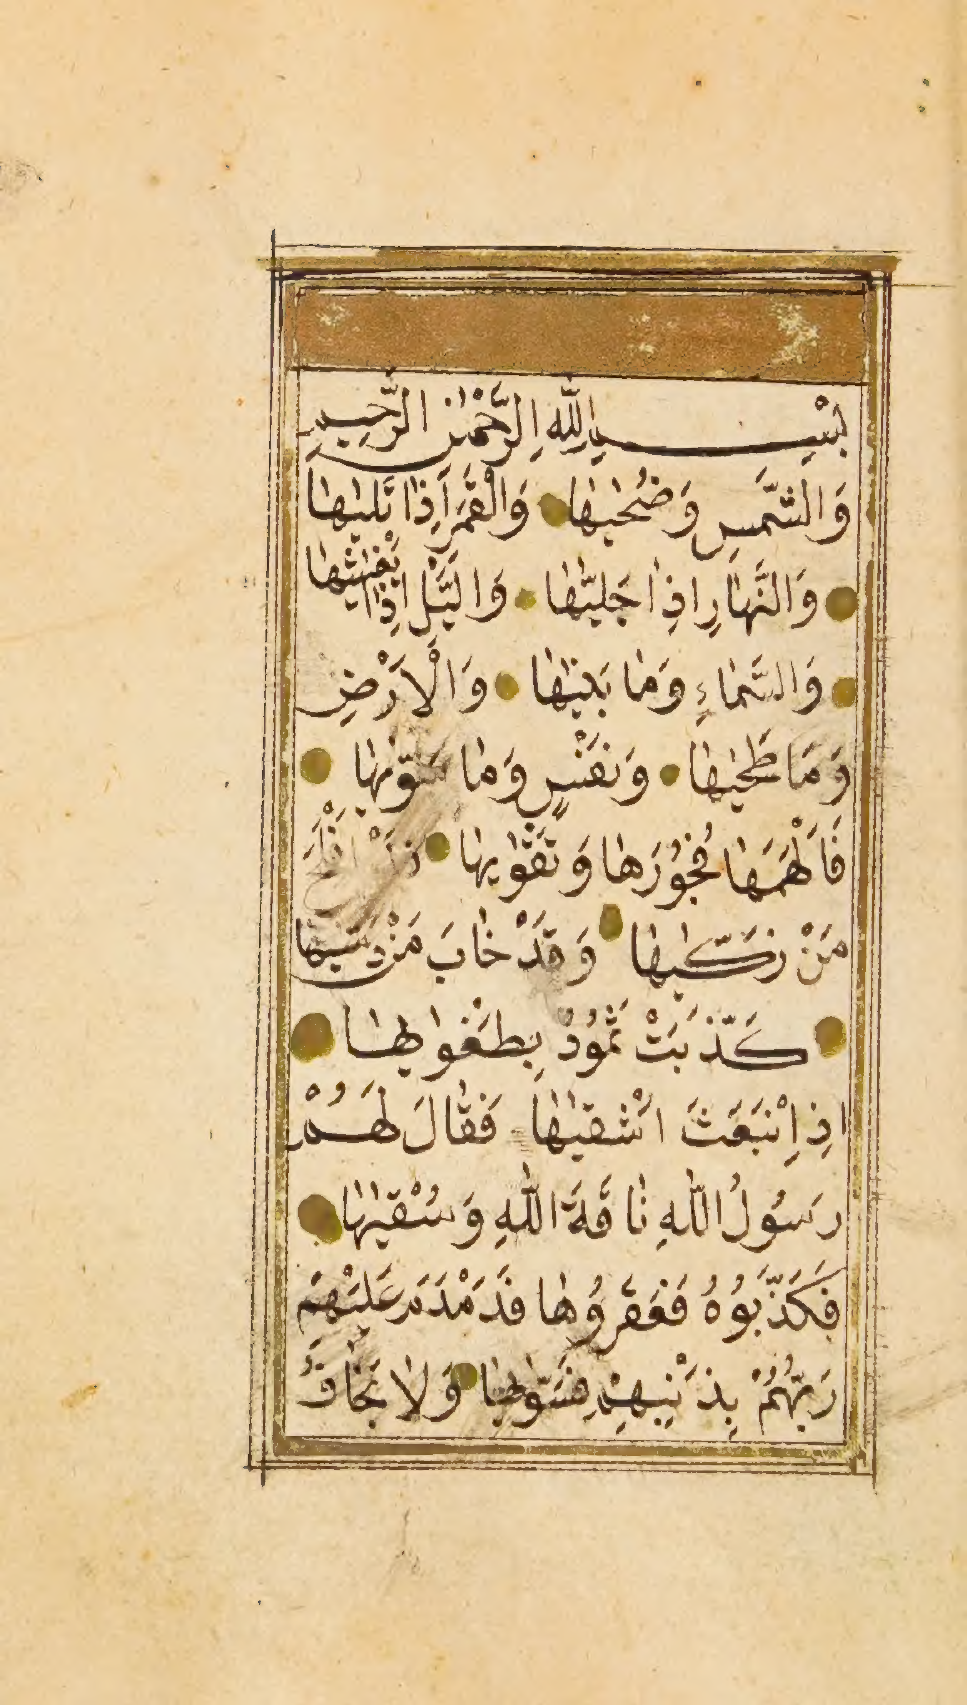 بِسْمِ اللّٰهِ الرَّحْمٰنِ الرَّحِيمِ
وَالشَّمْسِ وَضُحٰيهٰا وَالْقَمَرِ اِذٰا تَلٰيهٰا
وَالنَّهٰارِ اِذٰا جَلّٰيهٰا وَالَّيْلِ اِذٰا يَغْشٰيهٰا
وَالسَّمٰاءِ وَمٰا بَنٰيهٰا وَالْاَرْضِ
وَمَا طَحٰيهٰا وَنَفْسٍ وَمٰا سَوّٰيهٰا
فَاَلْهَمَهٰا فُجُورَهٰا وَتَقْوٰيهٰا قَدْ اَفْلَحَ
مَنْ زَكّٰيهٰا وَقَدْ خٰابَ مَنْ دَسّٰيهٰا
كَذَّبَتْ ثَمُودُ بِطَغْوٰيهٰا
اِذِ اِنْبَعَثَ اَشْقٰيهٰا فَقٰالَ لَهُمْ
رَسُولُ اللّٰهِ نٰاقَةَ اللّٰهِ وَسُقْيٰهٰا
فَكَذَّبُوهُ فَعَقَرُوهٰا فَدَمْدَمَ عَلَيْهِمْ
رَبُّهُمْ بِذَنْبِهِمْ فَسَوّٰيهٰا وَلٰا يَخٰافُ